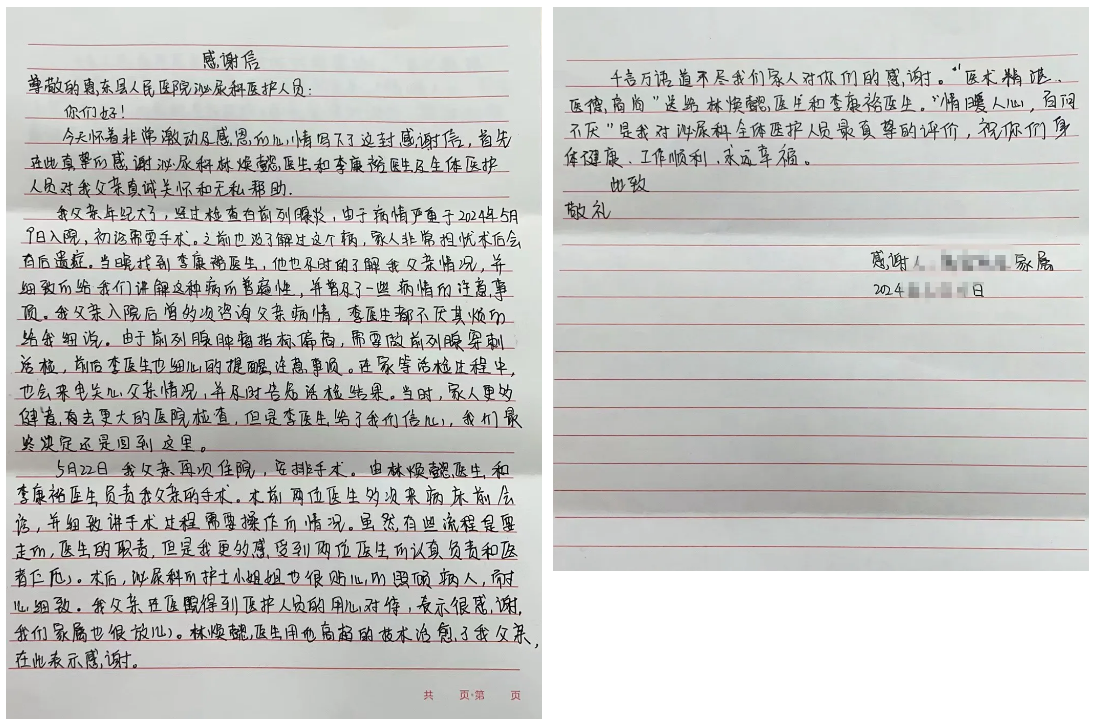 感谢信
尊敬的惠东县人民医院泌尿科医护人员：
你们好！
今天怀着非常激动及感恩的心情写下了这封感谢信，首先
在此真挚的感谢泌尿科林焕懿医生和李康裕医生及全体医护
人员对我父亲真诚关怀和无私帮助.
我父亲年纪大了，经过检查有前列腺炎，由于病情严重于2024年5月
9日入院，初诊需要手术。之前也没了解过这个病，家人非常担忧术后会
有后遗症。当晚找到李康裕医生，他也及时的了解我父亲情况，并
细致的给我们讲解这种病的普遍性，并普及了一些病情的注意事
项。我父亲入院后曾多次咨询父亲病情，李医生都不厌其烦的
给我细说。由于前列腺肿瘤指标偏高，需要做前列腺穿刺
活检，前后李医生也细心的提醒注意事项。在家等活检过程中，
也会来电关心父亲情况，并及时告知活检结果。当时，家人更多
倾着有去更大的医院检查，但是李医生给了我们信心，我们最
终决定还是回到这里。
5月22日 我父亲再次住院，安排手术。由林焕懿医生和
李康裕医生负责我父亲的手术。术前两位医生多次来病床前会
诊，并细致讲手术过程需要操作的情况。虽然有些流程是要
走的，医生的职责，但是我更多感受到两位医生的认真负责和医
者仁心。术后，泌尿科的护士小姐姐也很贴心的照顾病人，耐
心细致。我父亲在医院得到医护人员的用心对待，表示很感谢，
我们家属也很放心。林焕懿医生用他高超的技术治愈了我父亲，
在此表示感谢。
共 页·第 页
千言万语道不尽我们家人对你们的感谢。“医术精湛、
医德高尚”送给林焕懿医生和李康裕医生。“情暖人心，百问
不厌”是我对泌尿科全体医护人员最真挚的评价，祝你们身
体健康、工作顺利、永远幸福。
此致
敬礼
感谢人 家属
2024 日